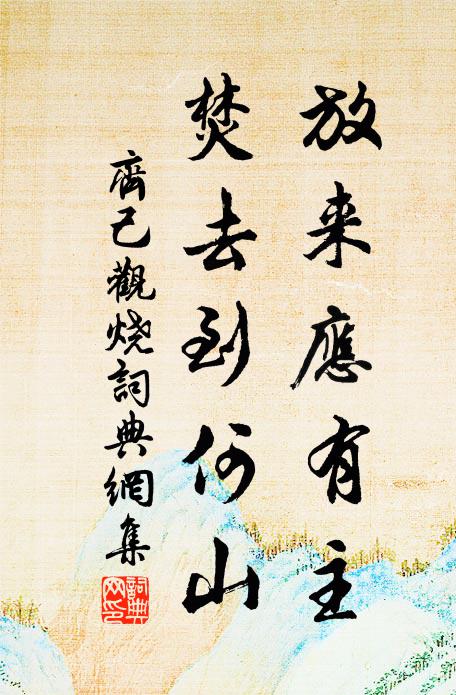 放来應有主
焚去到何山
齊己觀烧詞典網集
詞典
网印